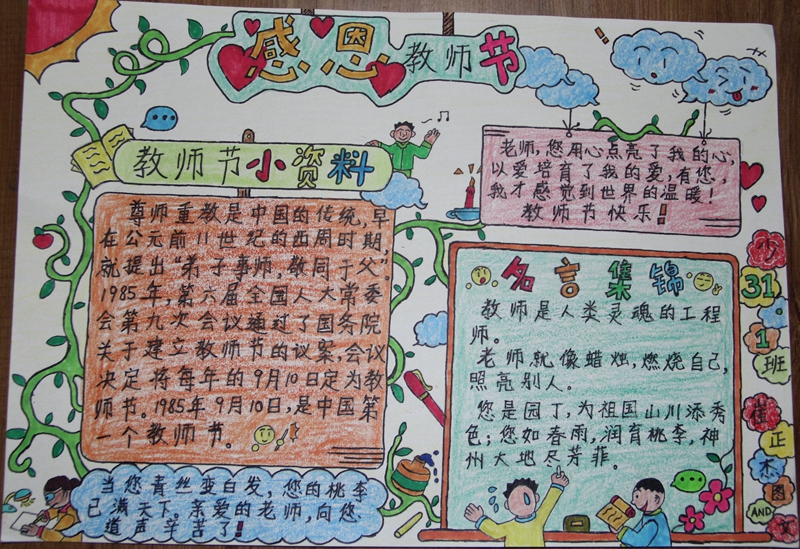 感恩教师节
教师节小资料
尊师重教是中国的传统,早
在公元前11世纪的西周时期,
就提出“弟子事师,敬同于父”
1985年,第六届全国人大常委
会第九次会议通过了国务院
关于建立教师节的议案,会议
决定将每年的9月10日定为教
师节。1985年9月10日,是中国第
一个教师节。
当您青丝变白发,您的桃李
已满天下。亲爱的老师,向您
道声辛苦了!
老师,您用心点亮了我的心,
以爱培育了我的爱,有您,
我才感觉到世界的温暖!
教师节快乐!
名言集锦
教师是人类灵魂的工程
师。
老师就像蜡烛,燃烧自己,
照亮别人。
您是园丁,为祖国山川添秀
色;您如春雨,润育桃李,神
州大地尽芳菲。
31
1
班
正
木
图
AND